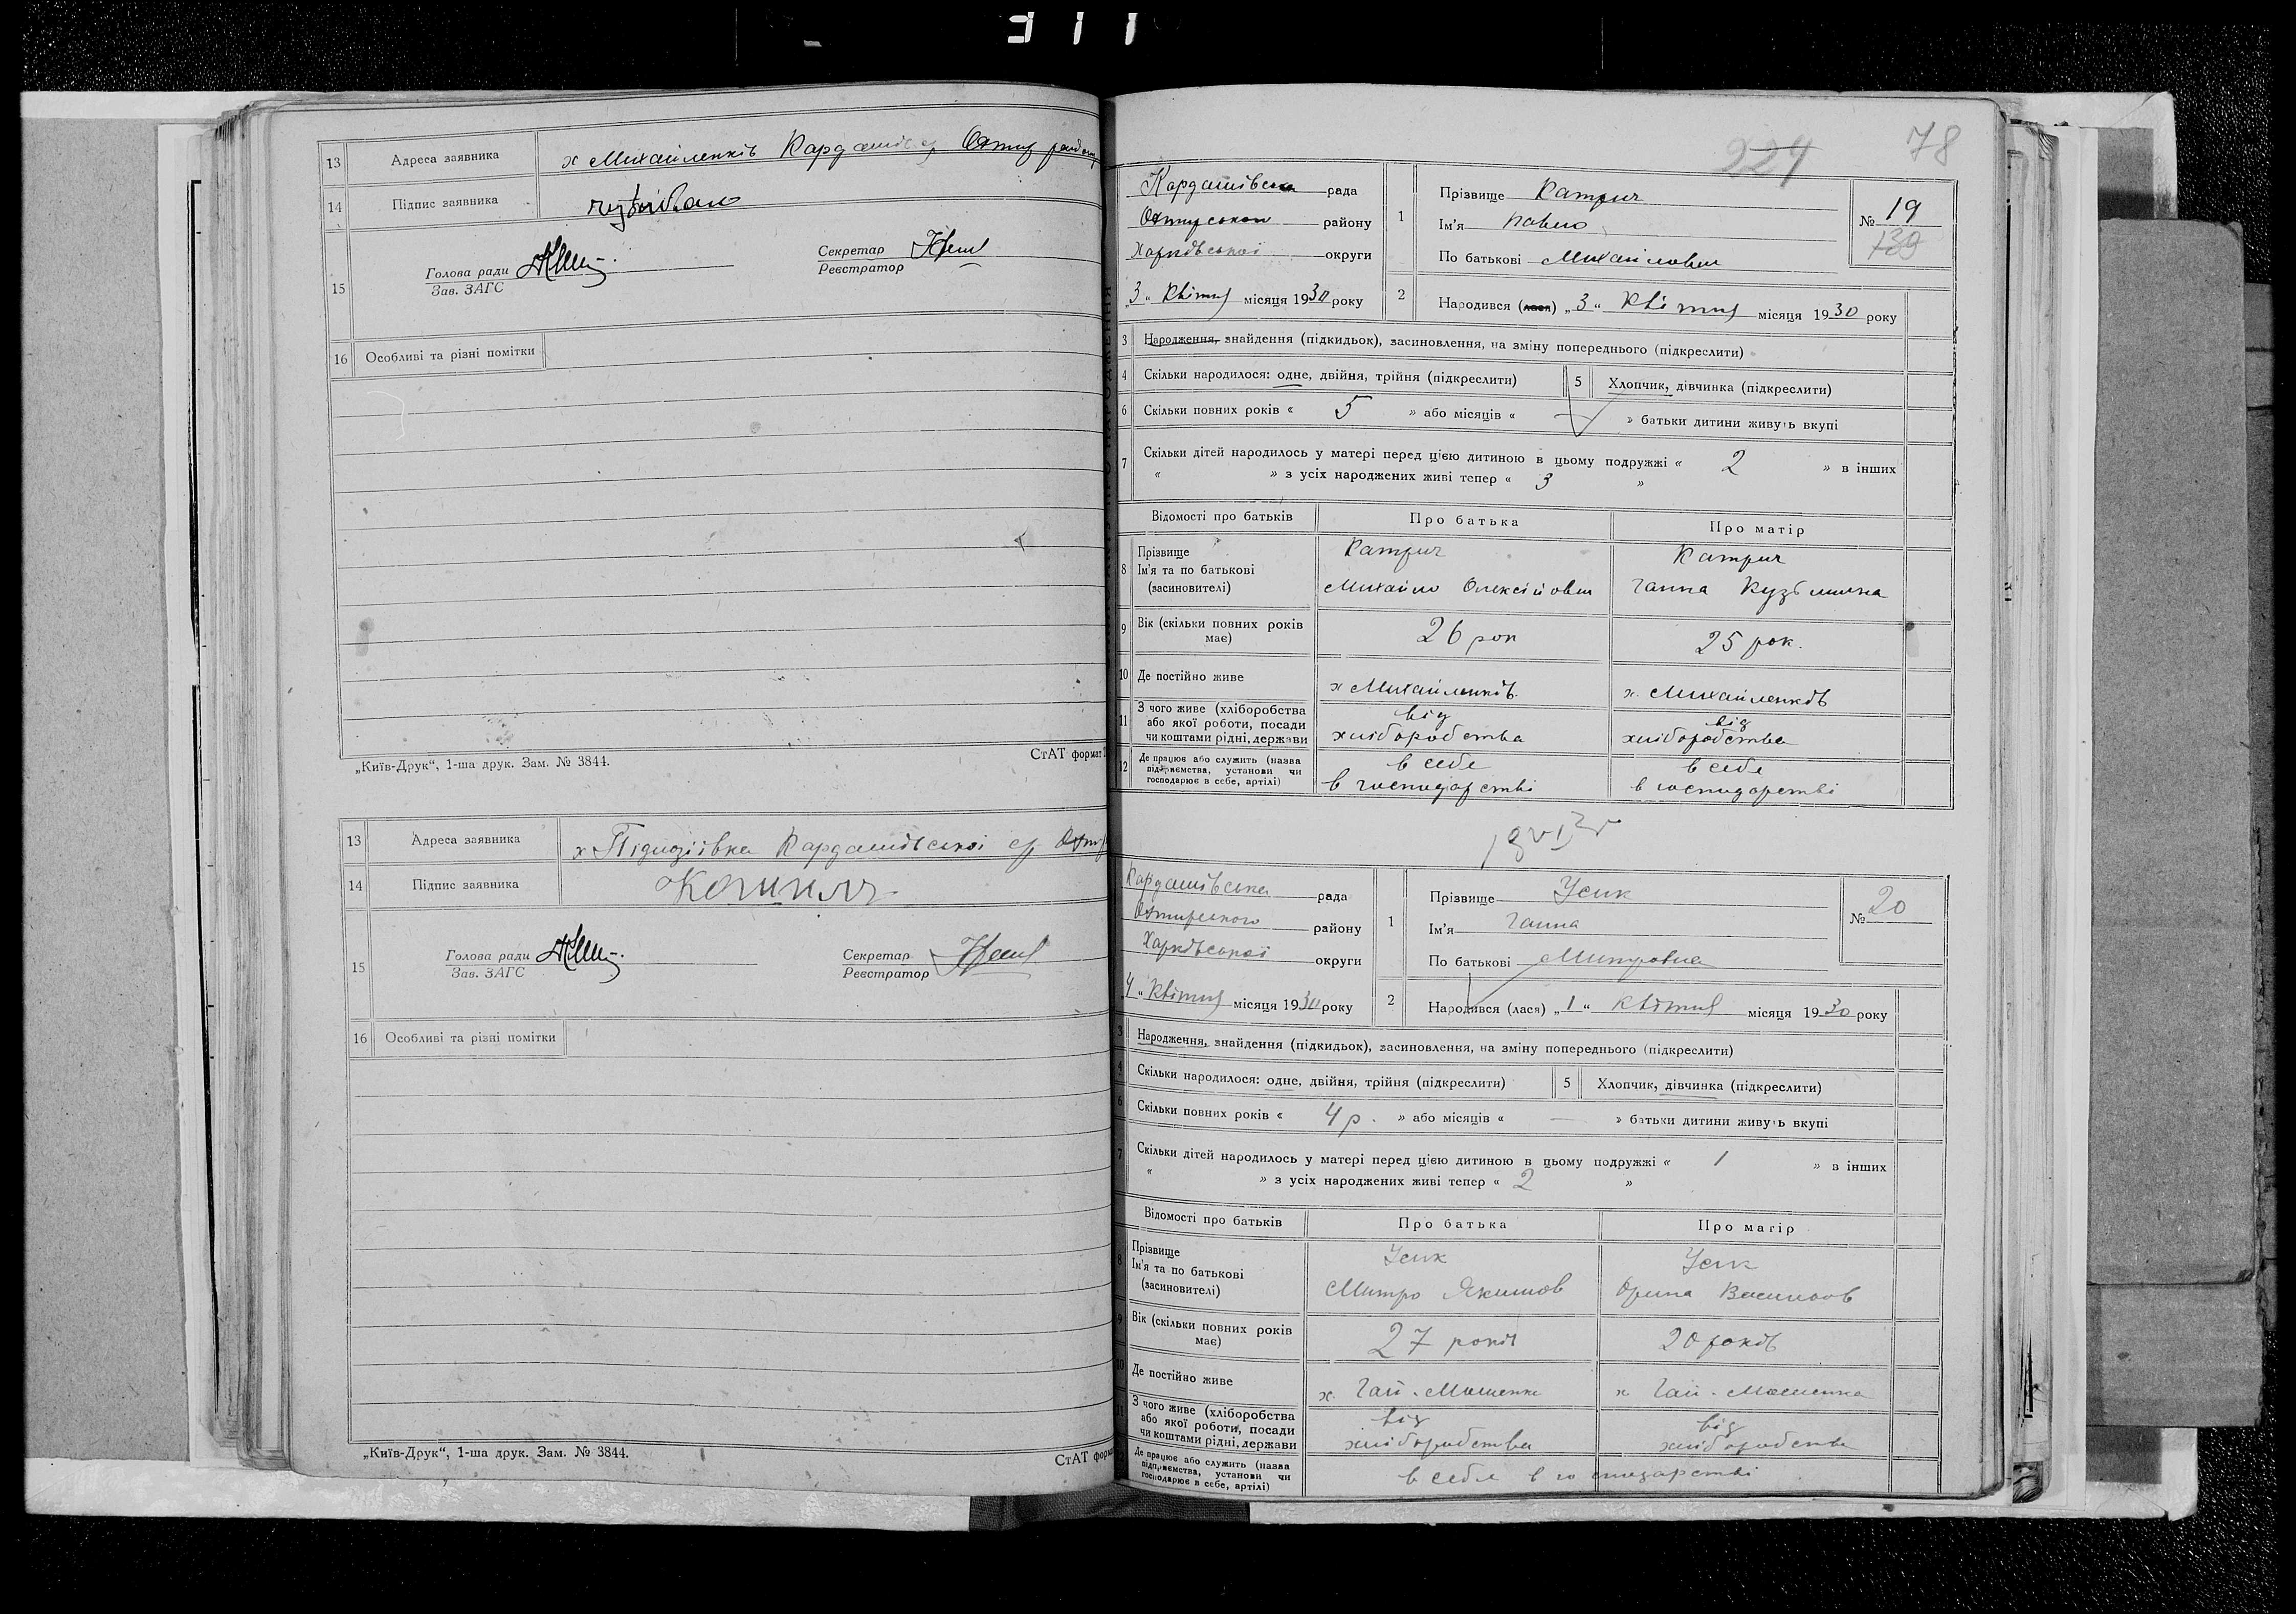 311
13 Адреса заявника х Михайленків Кардашівс
14 Підпис заявника
15 Голова ради
Зав. ЗАГС
Секретар
Реєстратор
16 Особливі та різні помітки
„Київ-Друк“, 1-ша друк. Зам. № 3844.
СтАТ формат
13 Адреса заявника х Кардашівської
14 Підпис заявника
15 Голова ради
Зав. ЗАГС
Секретар
Реєстратор
16 Особливі та різні помітки
„Київ-Друк“, 1-ша друк. Зам. № 3844.
СтАТ форма
224 78
Кардашівська рада
району
Харківської округи
„3“ Квітня місяця 1930 року
1 Прізвище Катрич
Ім'я Павло
По батькові Михайлович
№ 19
130
2 Народився (лася) „3“ Квітня місяця 1930 року
3 Народження, знайдення (підкидьок), засиновлення, на зміну попереднього (підкреслити)
4 Скільки народилося: одне, двійня, трійня (підкреслити) 5 Хлопчик, дівчинка (підкреслити)
6 Скільки повних років « 5 » або місяців « — » батьки дитини живуть вкупі
7 Скільки дітей народилось у матері перед цією дитиною в цьому подружжі « 2 » в інших
« » з усіх народжених живі тепер « 3 »
Відомості про батьків Про батька Про матір
8 Прізвище Катрич Катрич
Ім'я та по батькові
(засиновителі) Михайло Олексійович Ганна Кузьминична
9 Вік (скільки повних років має) 26 рок 25 рок.
10 Де постійно живе х Михайленків. х. Михайленків
11 З чого живе (хліборобства або якої роботи, посади чи коштами рідні, держави від хліборобства від хліборобства
12 Де працює або служить (назва підприємства, установи чи господарює в себе, артілі) в себе в господарстві в себе в господарстві
Кардашівська рада
Охтирського району
Харківської округи
„4“ Квітня місяця 1930 року
1 Прізвище Усик
Ім'я Ганна
По батькові Митровна
№ 20
2 Народився (лася) „1“ Квітня місяця 1930 року
3 Народження, знайдення (підкидьок), засиновлення, на зміну попереднього (підкреслити)
4 Скільки народилося: одне, двійня, трійня (підкреслити) 5 Хлопчик, дівчинка (підкреслити)
6 Скільки повних років « 4 р. » або місяців « — » батьки дитини живуть вкупі
7 Скільки дітей народилось у матері перед цією дитиною в цьому подружжі « 1 » в інших
« » з усіх народжених живі тепер « 2 »
Відомості про батьків Про батька Про матір
8 Прізвище Усик Усик
Ім'я та по батькові
(засиновителі) Митро Якимов Орина Василов
9 Вік (скільки повних років має) 27 років 20 років
10 Де постійно живе х. Гай-Мошенка х Гай-Мошенка
11 З чого живе (хліборобства або якої роботи, посади чи коштами рідні, держави від хліборобства від хліборобства
Де працює або служить (назва підприємства, установи чи господарює в себе, артілі) в себе в господарстві